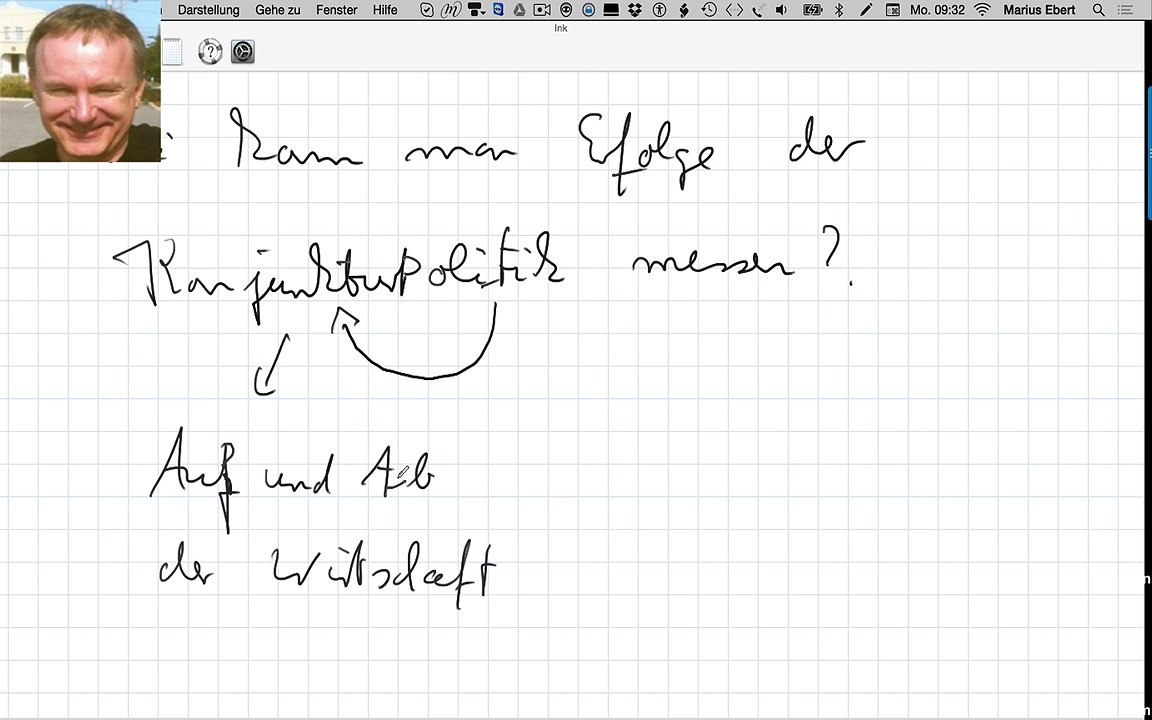 Darstellung Gehe zu Fenster Hilfe Mo. 09:32 Marius Ebert
Ink
kann man Erfolge der
Konjunkturpolitik messen?
Auf und Ab
der Wirtschaft